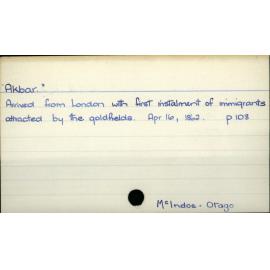 "Akbar."
Arrived from London with first instalment of immigrants
attracted by the goldfields. Apr 16, 1862. p 108
McIndoe - Otago